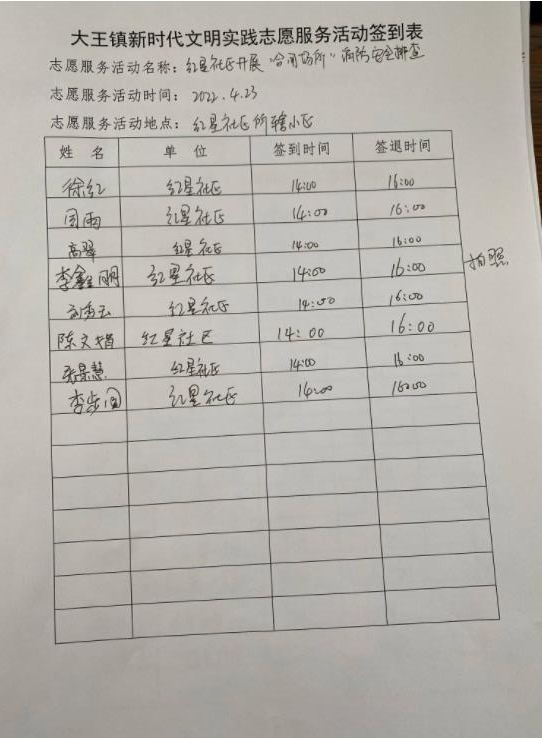 大王镇新时代文明实践志愿服务活动签到表
志愿服务活动名称：红星社区开展“合用场所”消防安全排查
志愿服务活动时间：2022.4.23
志愿服务活动地点：红星社区所辖小区
姓 名 单 位 签到时间 签退时间
徐红 红星社区 14:00 16:00
周雨 红星社区 14:00 16:00
高翠 红星社区 14:00 16:00
李鑫明 红星社区 14:00 16:00 拍照
红星社区 14:00 16:00
陈文娟 红星社区 14:00 16:00
张景慧 红星社区 14:00 16:00
李步国 红星社区 14:00 16:00